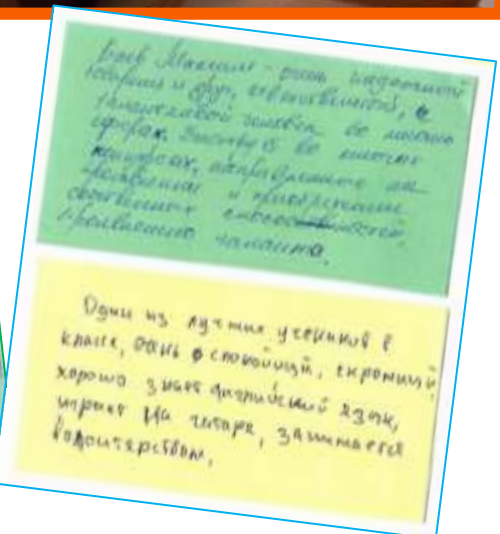 Максим - очень надежный
товарищ и друг, ответственный, 
талантливый человек во многих
сферах. Участвует во многих
конкурсах,
и
собственных способностей,
таланта.
Один из лучших учеников в
классе, очень спокойный, скромный,
хорошо знает английский язык,
играет на гитаре, занимается
волонтерством.